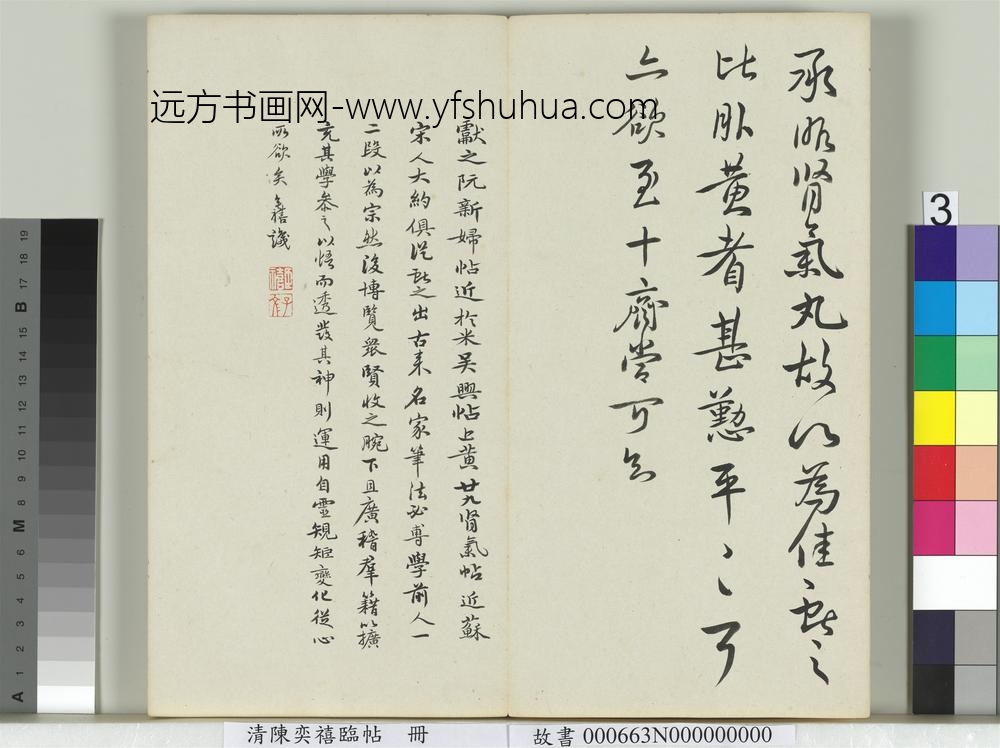 远方书画网-www.yfshuhua.com
承服腎氣丸故以為佳獻之
比服黃耆甚懃平〻耳
亦欲至十齊當可知
獻之阮新婦帖近於米吳興帖上黃廿九腎氣帖近蘇
宋人大約俱從獻之出古来名家筆法必專學前人一
二段以為宗然後博覽眾賢收之腕下且廣稽羣籍以擴
充其學參之以悟而透發其神則運用自靈規矩變化從心
所欲矣奕禧識
3
A 1 2 3 4 5 6 M 8 9 10 11 12 13 14 15 B 17 18 19
清陳奕禧臨帖 冊
故書 000663N000000000